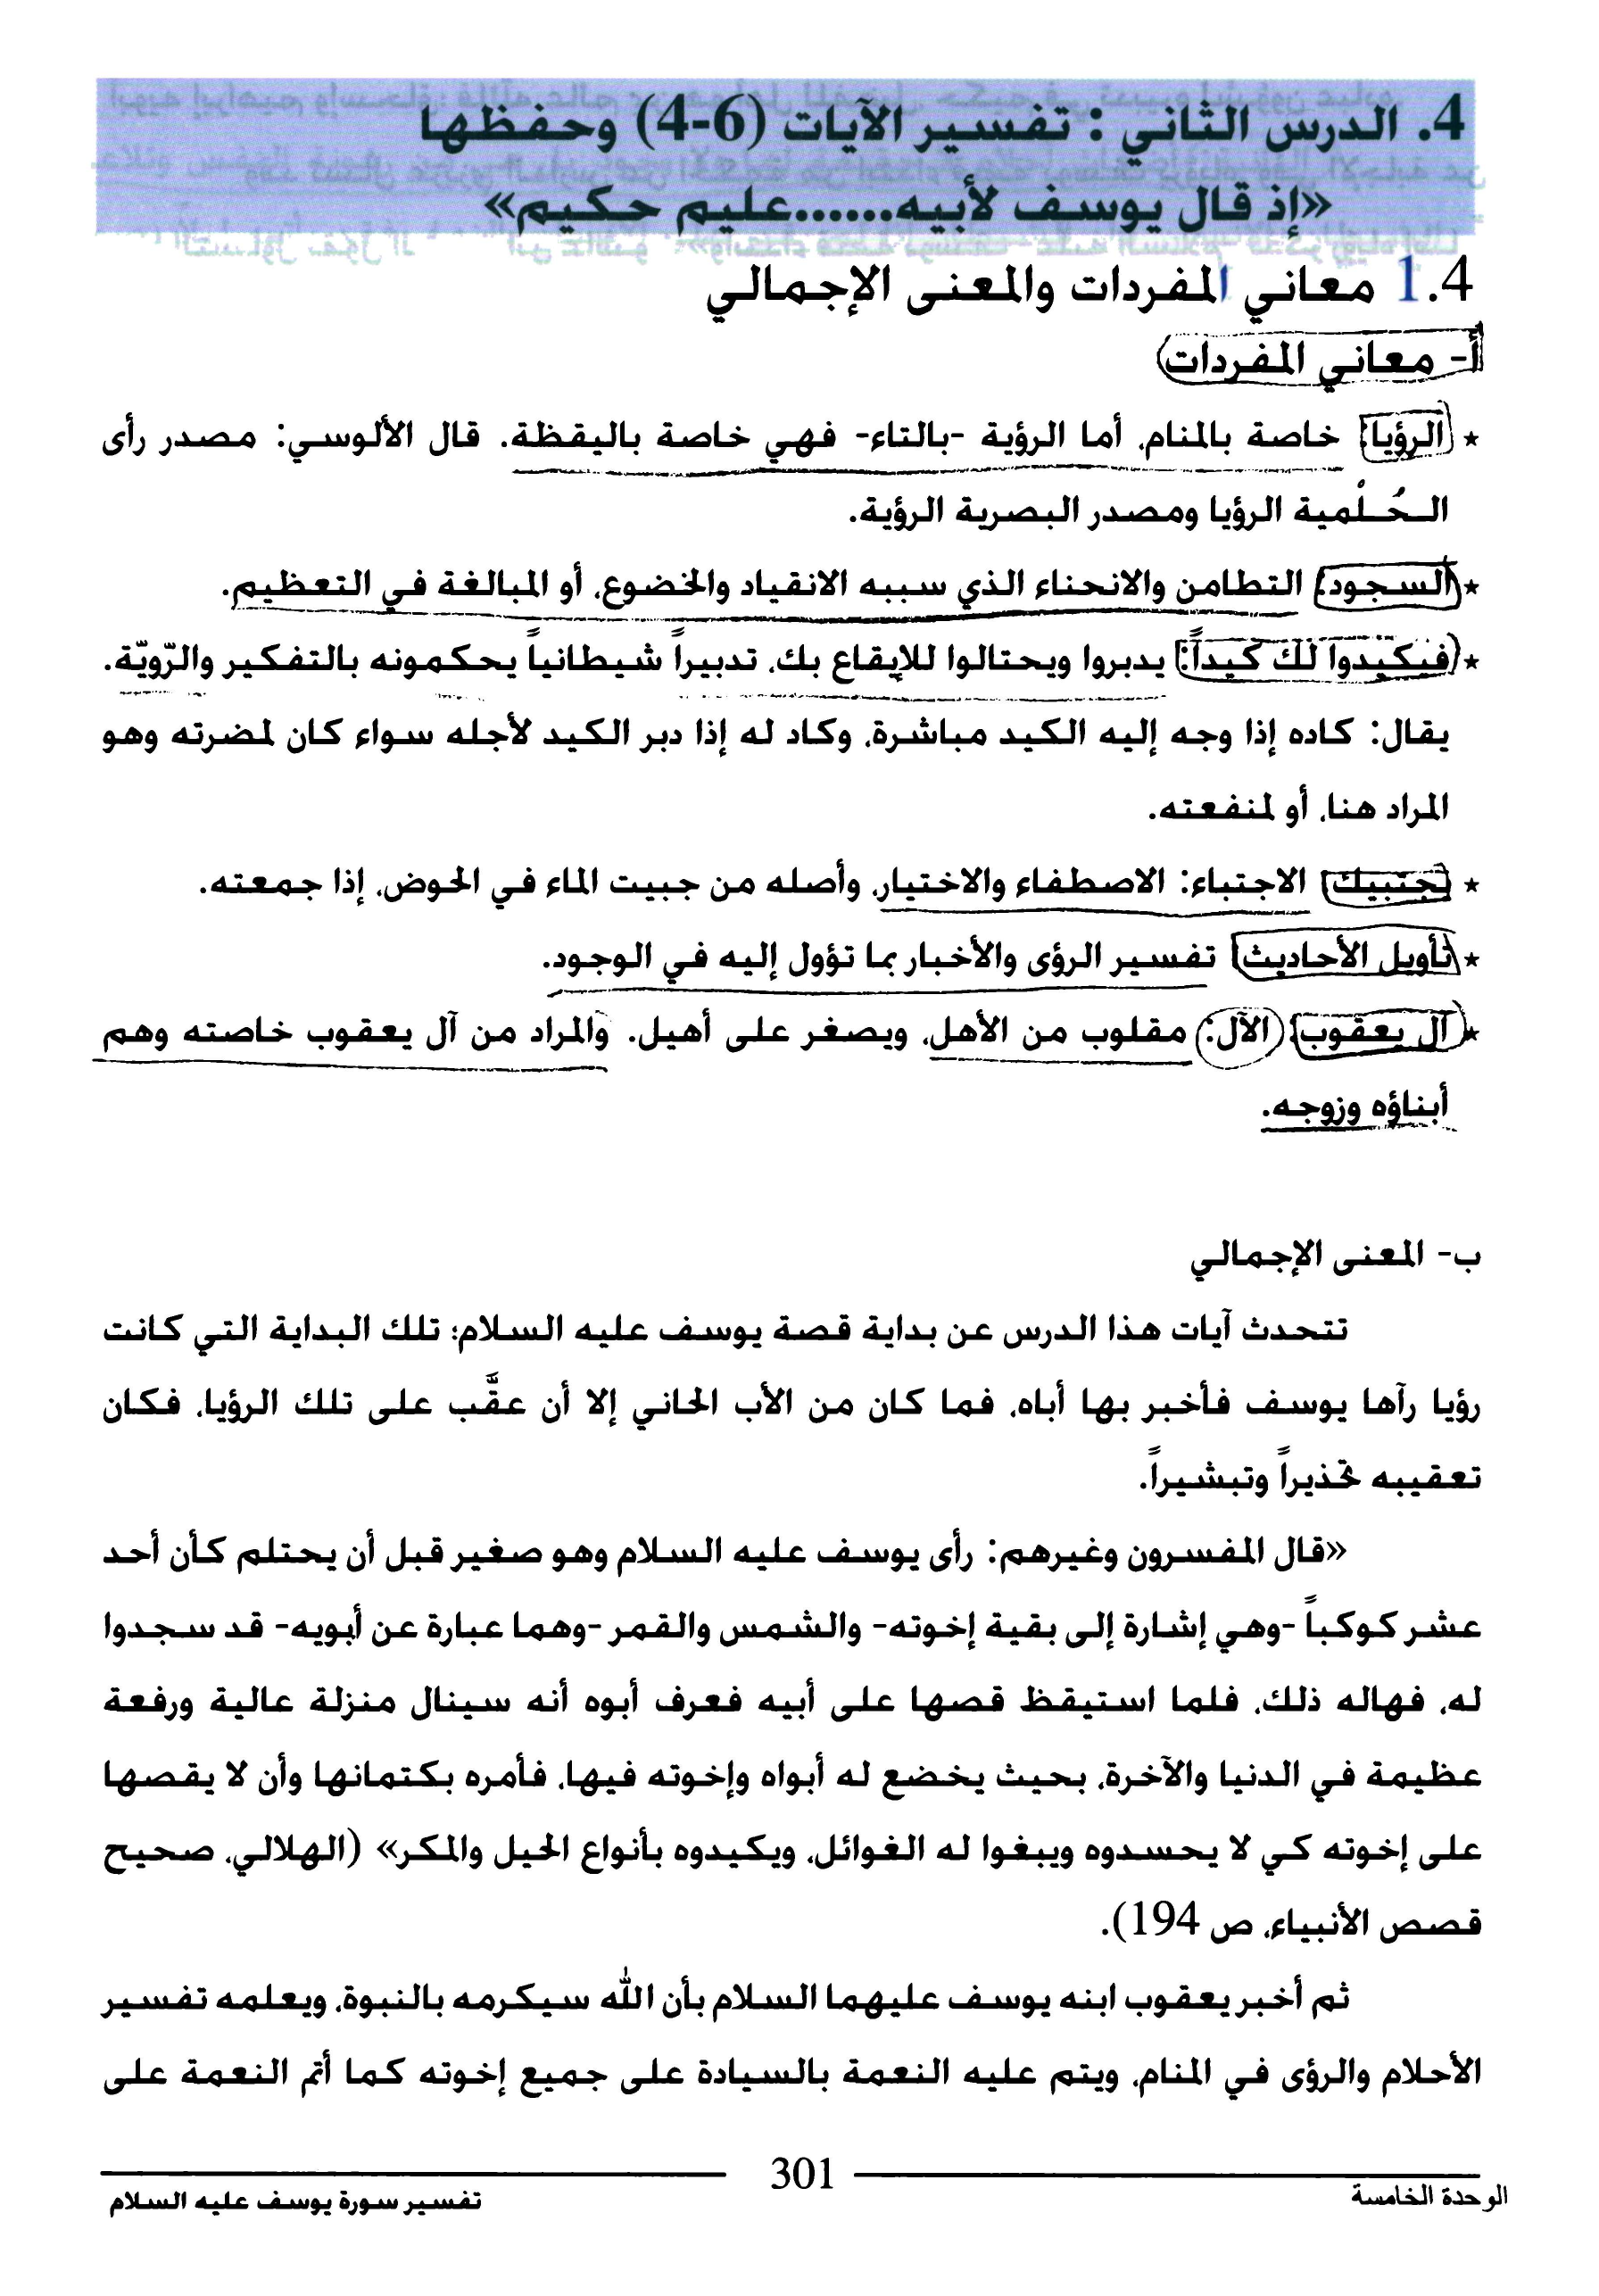 4. الدرس الثاني : تفسير الآيات (4-6) وحفظها
«إذ قال يوسف لأبيه......عليم حكيم»
1.4 معاني المفردات والمعنى الإجمالي
أ- معاني المفردات
* الرؤيا: خاصة بالمنام، أما الرؤية -بالتاء- فهي خاصة باليقظة. قال الألوسي: مصدر رأى
الـحُـلْمية الرؤيا ومصدر البصرية الرؤية.
* السجود: التطامن والانحناء الذي سببه الانقياد والخضوع، أو المبالغة في التعظيم.
* فيكيدوا لك كيداً: يدبروا ويحتالوا للإيقاع بك، تدبيراً شيطانياً يحكمونه بالتفكير والرّويّة.
يقال: كاده إذا وجه إليه الكيد مباشرة، وكاد له إذا دبر الكيد لأجله سواء كان لمضرته وهو
المراد هنا، أو لمنفعته.
* يجتبيك: الاجتباء: الاصطفاء والاختيار، وأصله من جبيت الماء في الحوض، إذا جمعته.
* تأويل الأحاديث: تفسير الرؤى والأخبار بما تؤول إليه في الوجود.
* آل يعقوب: الآل: مقلوب من الأهل، ويصغر على أهيل. والمراد من آل يعقوب خاصته وهم
أبناؤه وزوجه.
ب- المعنى الإجمالي
تتحدث آيات هذا الدرس عن بداية قصة يوسف عليه السلام؛ تلك البداية التي كانت
رؤيا رآها يوسف فأخبر بها أباه، فما كان من الأب الحاني إلا أن عقَّب على تلك الرؤيا، فكان
تعقيبه تحذيراً وتبشيراً.
«قال المفسرون وغيرهم: رأى يوسف عليه السلام وهو صغير قبل أن يحتلم كأن أحد
عشر كوكباً -وهي إشارة إلى بقية إخوته- والشمس والقمر -وهما عبارة عن أبويه- قد سجدوا
له، فهاله ذلك، فلما استيقظ قصها على أبيه فعرف أبوه أنه سينال منزلة عالية ورفعة
عظيمة في الدنيا والآخرة، بحيث يخضع له أبواه وإخوته فيها، فأمره بكتمانها وأن لا يقصها
على إخوته كي لا يحسدوه ويبغوا له الغوائل، ويكيدوه بأنواع الحيل والمكر» (الهلالي، صحيح
قصص الأنبياء، ص 194).
ثم أخبر يعقوب ابنه يوسف عليهما السلام بأن الله سيكرمه بالنبوة، ويعلمه تفسير
الأحلام والرؤى في المنام، ويتم عليه النعمة بالسيادة على جميع إخوته كما أتم النعمة على
301
الوحدة الخامسة
تفسير سورة يوسف عليه السلام